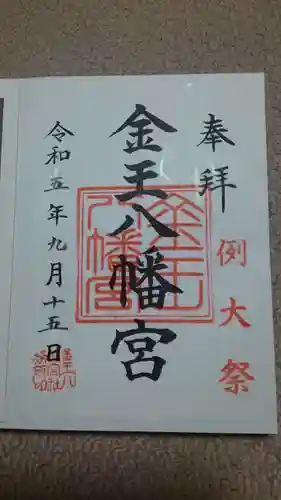 奉拝
例大祭
金王八幡宮
金王八幡宮
令和五年九月十五日